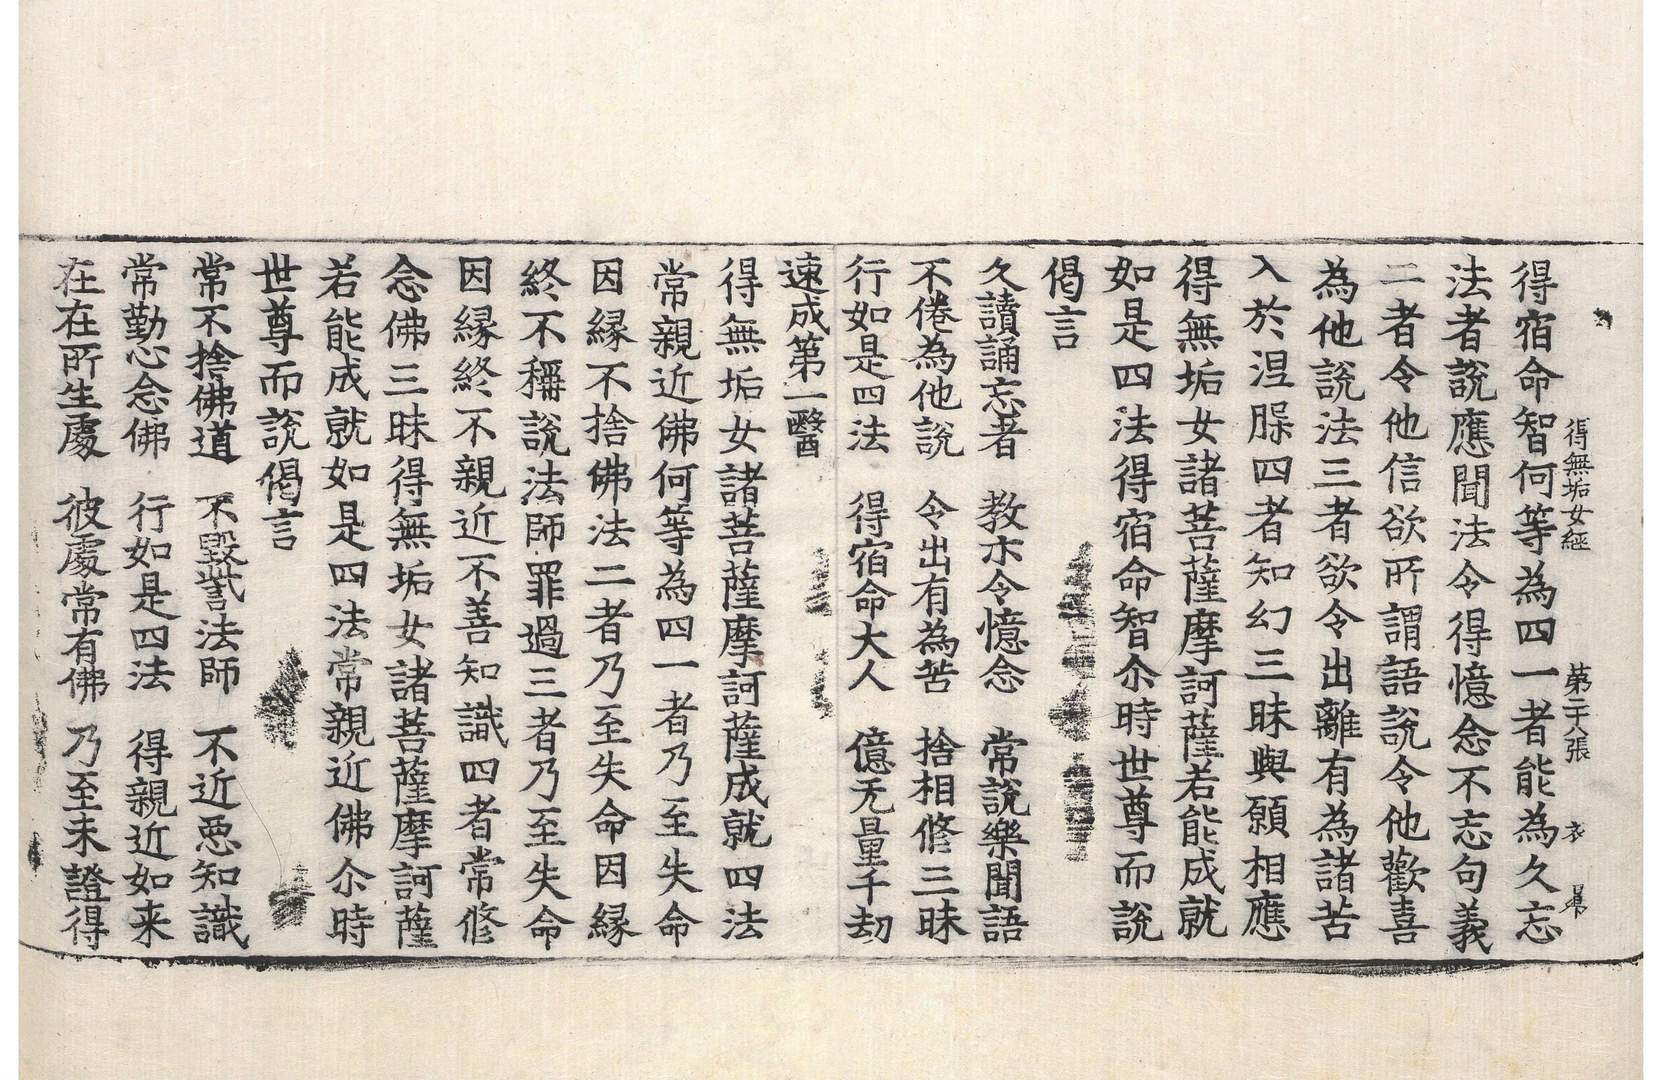 得無垢女經　第二十八張　衣
得宿命智何等為四一者能為久忘
法者說應聞法令得憶念不忘句義
二者令他信欲所謂語說令他歡喜
為他說法三者欲令出離有為諸苦
入於涅槃四者知幻三昧與願相應
得無垢女諸菩薩摩訶薩若能成就
如是四法得宿命智尒時世尊而說
偈言
久讀誦忘者　教示令憶念　常說樂聞語
不倦為他說　令出有為苦　捨相修三昧
行如是四法　得宿命大人　億无量千劫
速成第一醫
得無垢女諸菩薩摩訶薩成就四法
常親近佛何等為四一者乃至失命
因緣不捨佛法二者乃至失命因緣
終不稱說法師罪過三者乃至失命
因緣終不親近不善知識四者常修
念佛三昧得無垢女諸菩薩摩訶薩
若能成就如是四法常親近佛尒時
世尊而說偈言
常不捨佛道　不毀訾法師　不近惡知識
常勤心念佛　行如是四法　得親近如来
在在所生處　彼處常有佛　乃至未證得